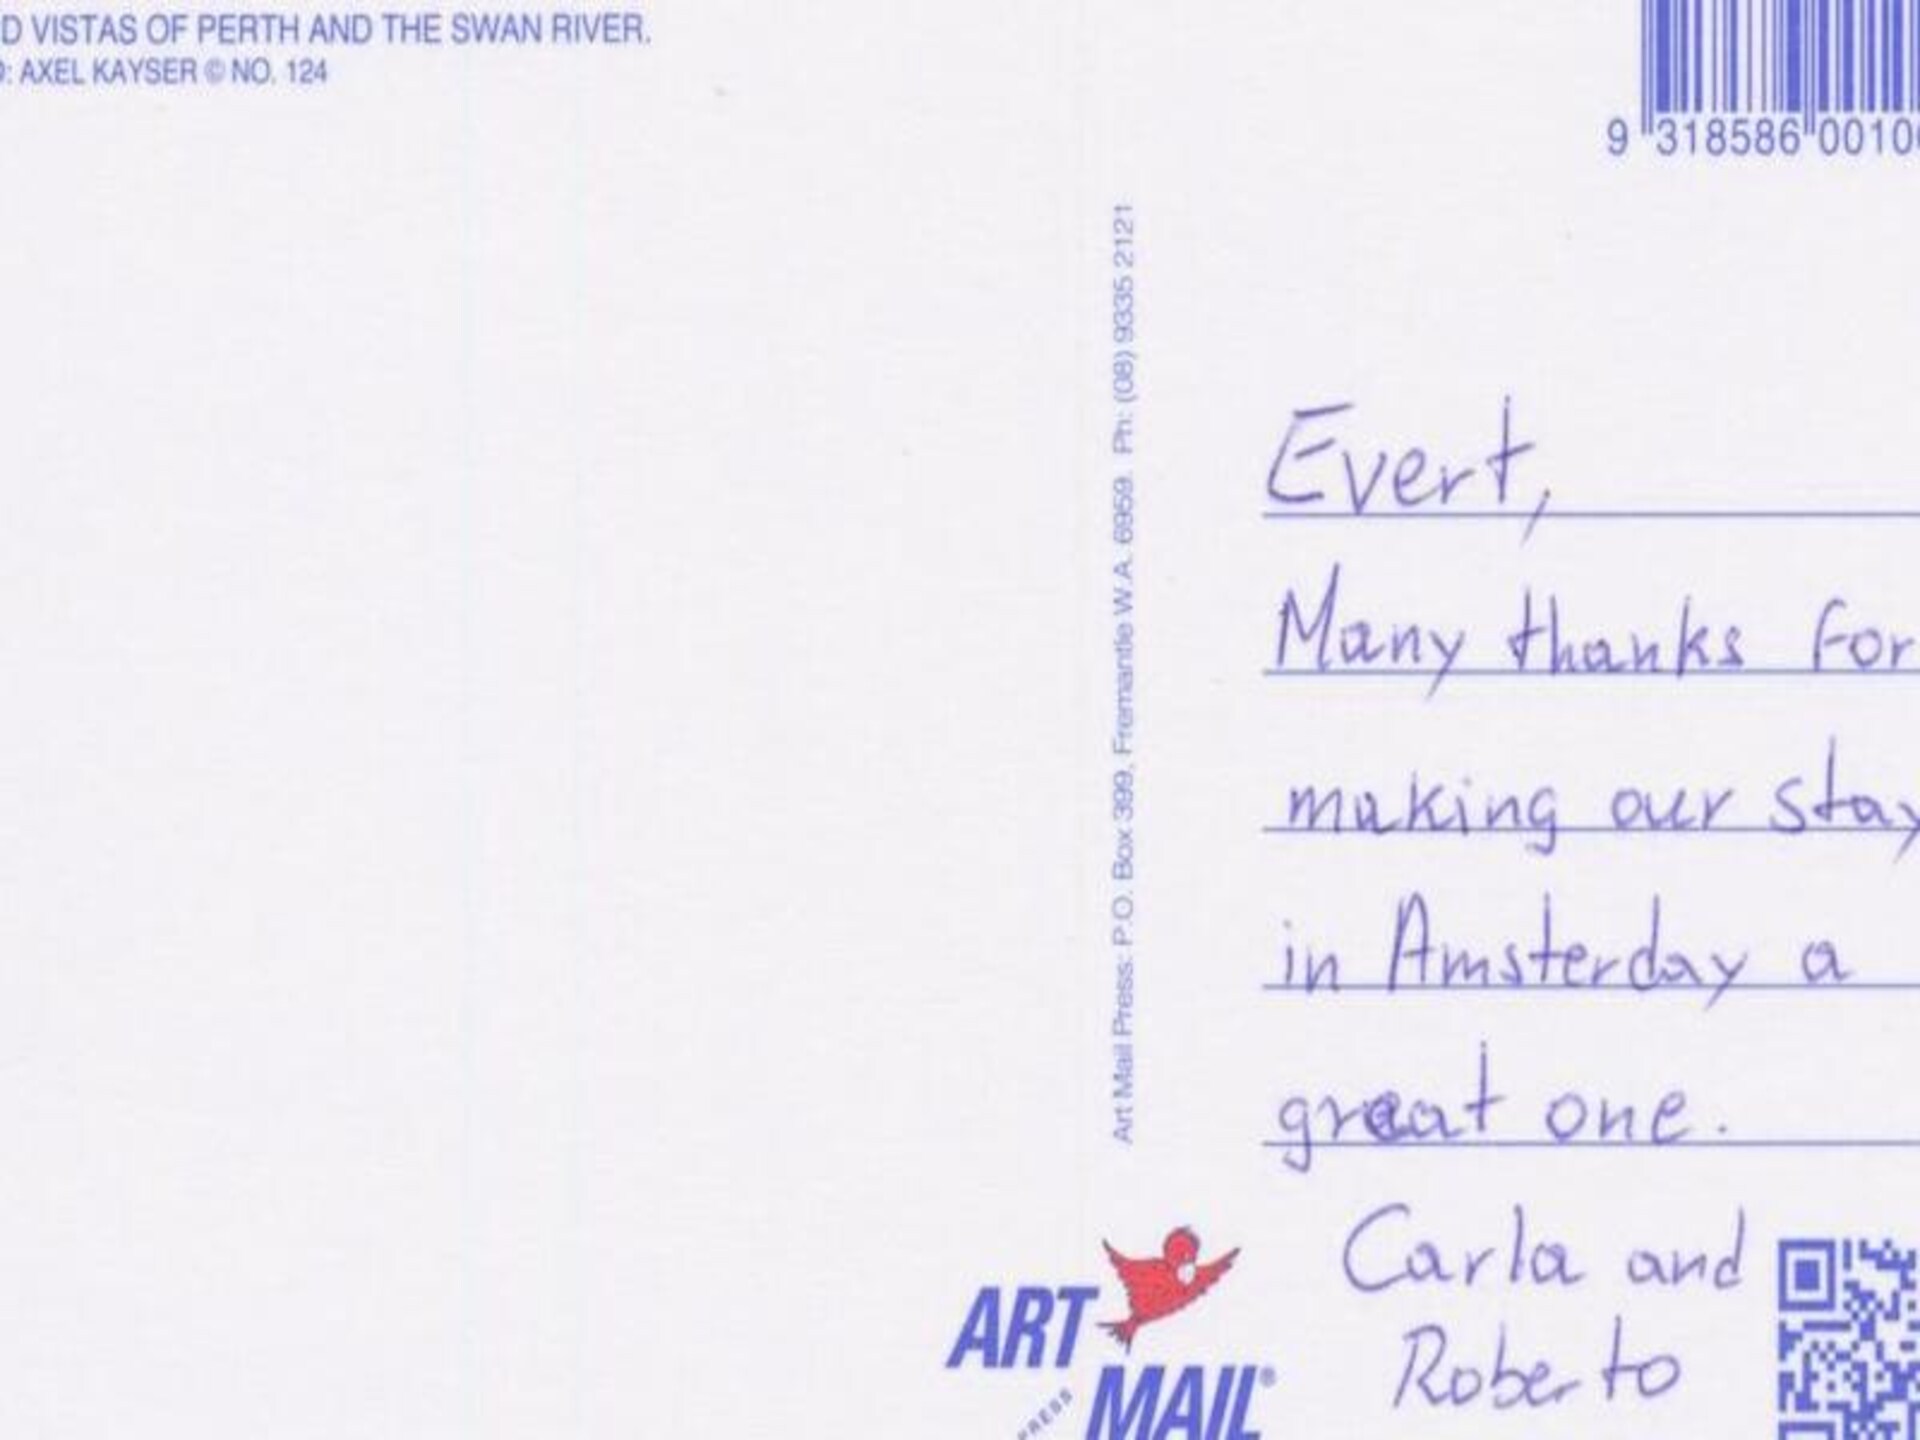 D VISTAS OF PERTH AND THE SWAN RIVER.
: AXEL KAYSER © NO. 124
9 318586 0010
Art Mail Press: P.O. Box 399, Fremantle W.A. 6959. Ph: (08) 9335 2121
Evert,
Many thanks for
making our stay
in Amsterday a
great one.
Carla and
Roberto
ART
PRESS
MAIL®